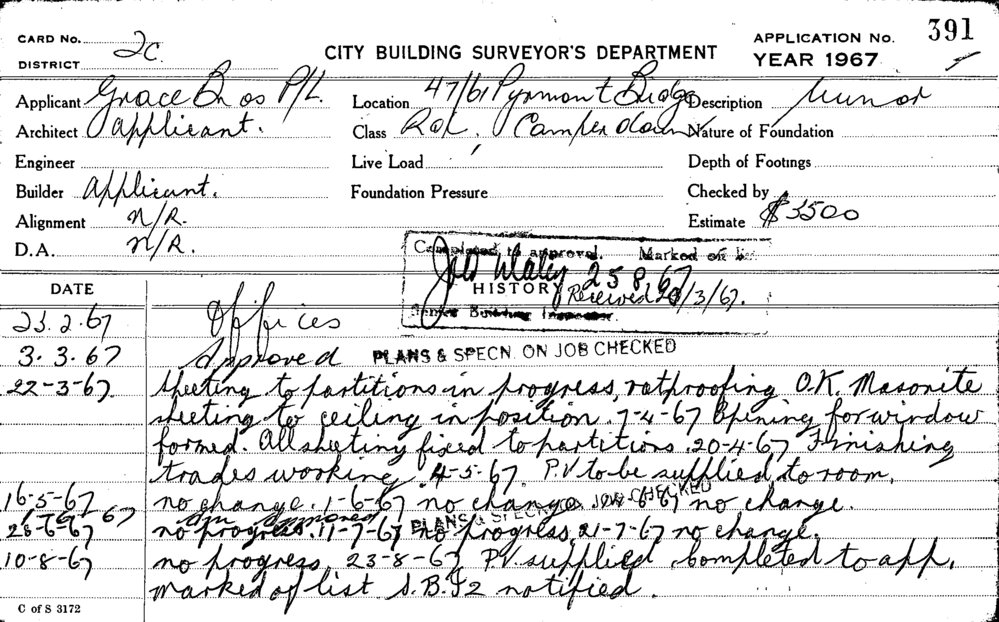 CARD No. 2c
DISTRICT
CITY BUILDING SURVEYOR'S DEPARTMENT
APPLICATION No. 391
YEAR 1967
Applicant Grace Bros P/L. Location 47/61 Pyrmont Bridge Description Minor
Architect Applicant. Class Camperdown Nature of Foundation
Engineer Live Load Depth of Footings
Builder Applicant. Foundation Pressure Checked by
Alignment N/R. Estimate $3500
D.A. N/R.
Completed to approval. Marked off list
25 8 67
DATE HISTORY Received 20/3/67.
Senior Building Inspector.
23.2.67 Offices
3.3.67 Approved PLANS & SPECN. ON JOB CHECKED
22-3-67. Sheeting to partitions in progress, ratproofing O.K. Masonite
sheeting to ceiling in position. 7-4-67 Opening for window
formed. All sheeting fixed to partitions. 20-4-67 Finishing
trades working. 4-5-67. P.V to be supplied to room.
16-5-67 no change. 1-6-67 no change. no change.
PLANS & SPECN ON JOB CHECKED
26-6-67 no progress. 11-7-67 no progress, 21-7-67 no change.
10-8-67 no progress. 23-8-67 P.V. supplied, completed to app,
marked of list S.B.I2 notified.
C of S 3172